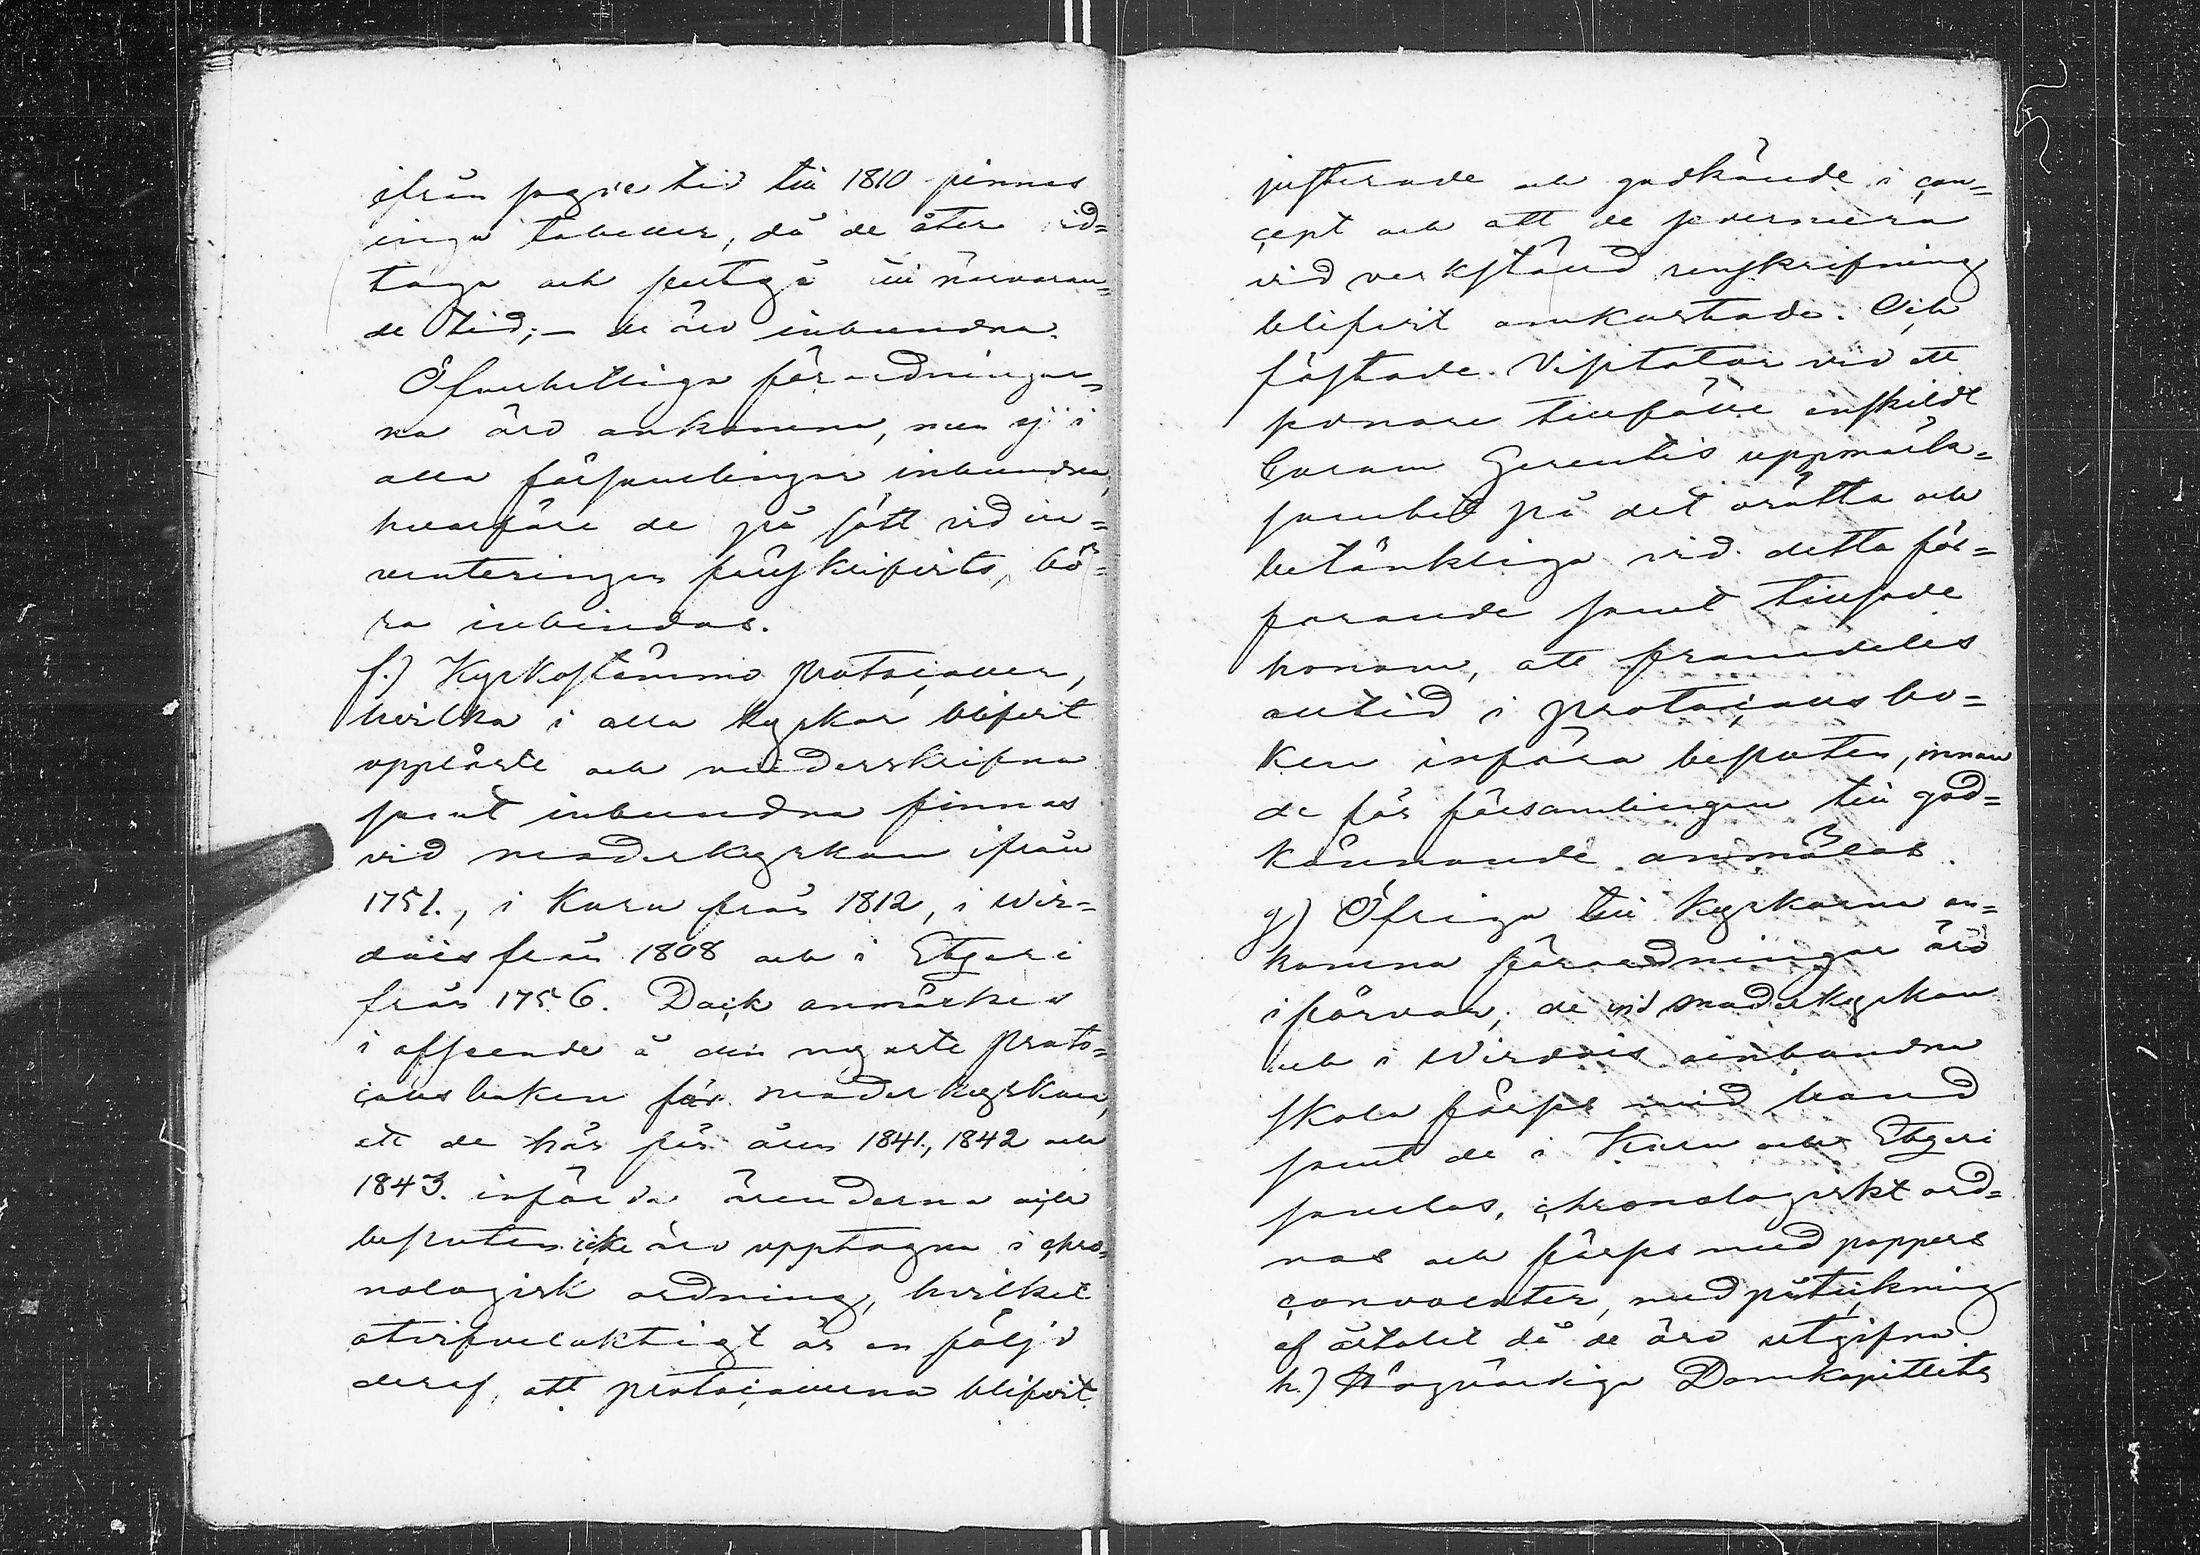 ifrån sagde tid till 1810 finnes
inga tabeller, då de åter vid=
taga och fortgå till närvaran=
de tid; – de äro inbundna.
Öfverhetliga förordningar=
na äro ankomne, men ej i
alla församlingar inbundna,
hvarföre de på sätt vid in=
venteringen föreskrifvits, bö=
ra inbindas.
f.) Kyrkostämmo protocoller,
hvilka i alla kyrkor blifvit
uppläste och underskrifna
samt inbundna finnas
vid moderkyrkan ifrån
1751., i Kuru från 1812, i Wir=
dois från 1808 och i Etzeri
från 1756. Dock anmärkes
i afseende å den nyaste proto=
collsboken för moderkyrkan,
att de här för åren 1841., 1842 och
1843. införda ärenderna och
besluten icke äro upptagna i chro=
nologisk ordning, hvilket
otvifvelaktigt är en följd
deraf, att protocollerna blifvit
justerade och godkände i con=
cept och att de sedermera
vid verkställd renskrifning
blifvit omkastade. Och
fästade Visitator vid ett
sednare tillfälle enskildt
Curam Gerentis uppmärk=
samhet på det orätta och
betänkliga vid detta för=
farande samt tillsade
honom, att framdeles
alltid i protocolls bo=
ken införa besluten, innan
de för församlingen till god=
kännande anmälas.
g) Öfriga till kyrkorna an=
komna förordningar äro
i förvar; de vid moderkyrkan
och i Wirdois oinbundna
skola förses med band
samt de i Kuru och Etzeri
samlas, chronologiskt ord=
nas och förses med pappers
convoluter, med påteckning
af årtalet då de äro utgifna
h.) Högvördiga Domkapitlets